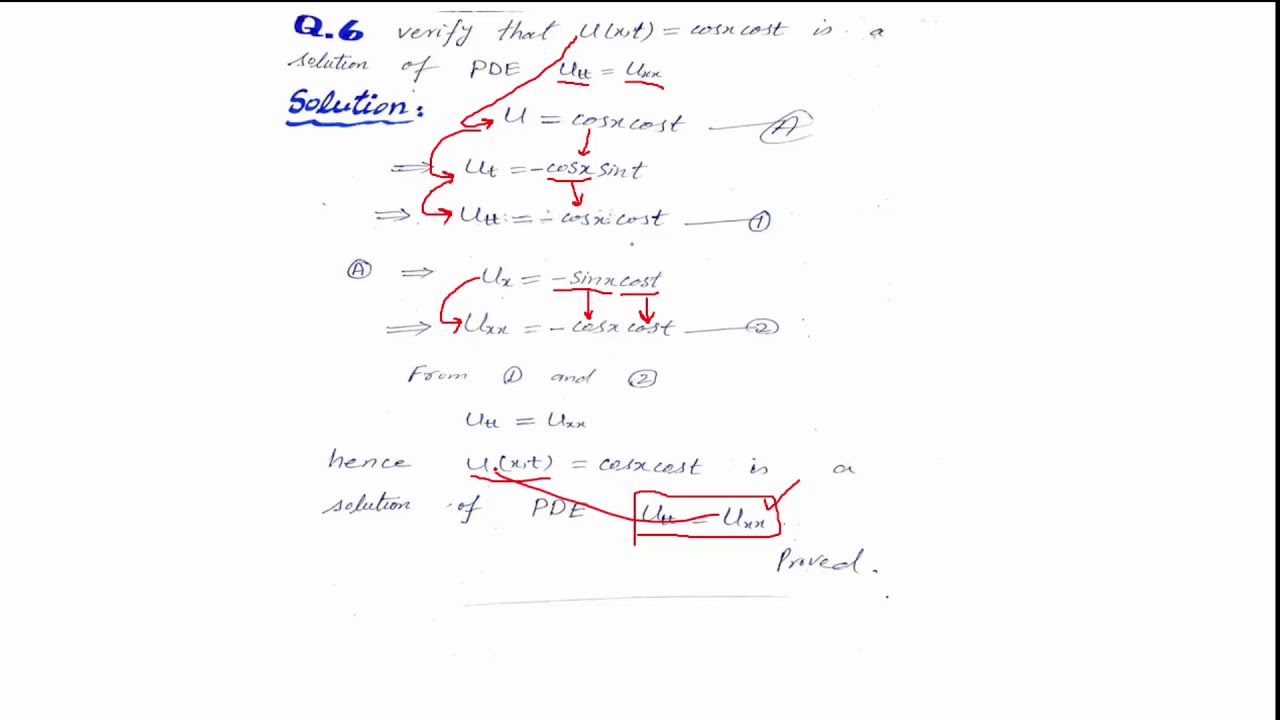 Q.6 verify that U(x,t) = cosx cost is a
solution of PDE Utt = Uxx
Solution:
U = cosx cost — A
⇒ Ut = -cosx sint
⇒ Utt = -cosx cost — 1
A ⇒ Ux = -sinx cost
⇒ Uxx = -cosx cost — 2
From 1 and 2
Utt = Uxx
hence U(x,t) = cosx cost is a
solution of PDE Utt = Uxx.
Proved.